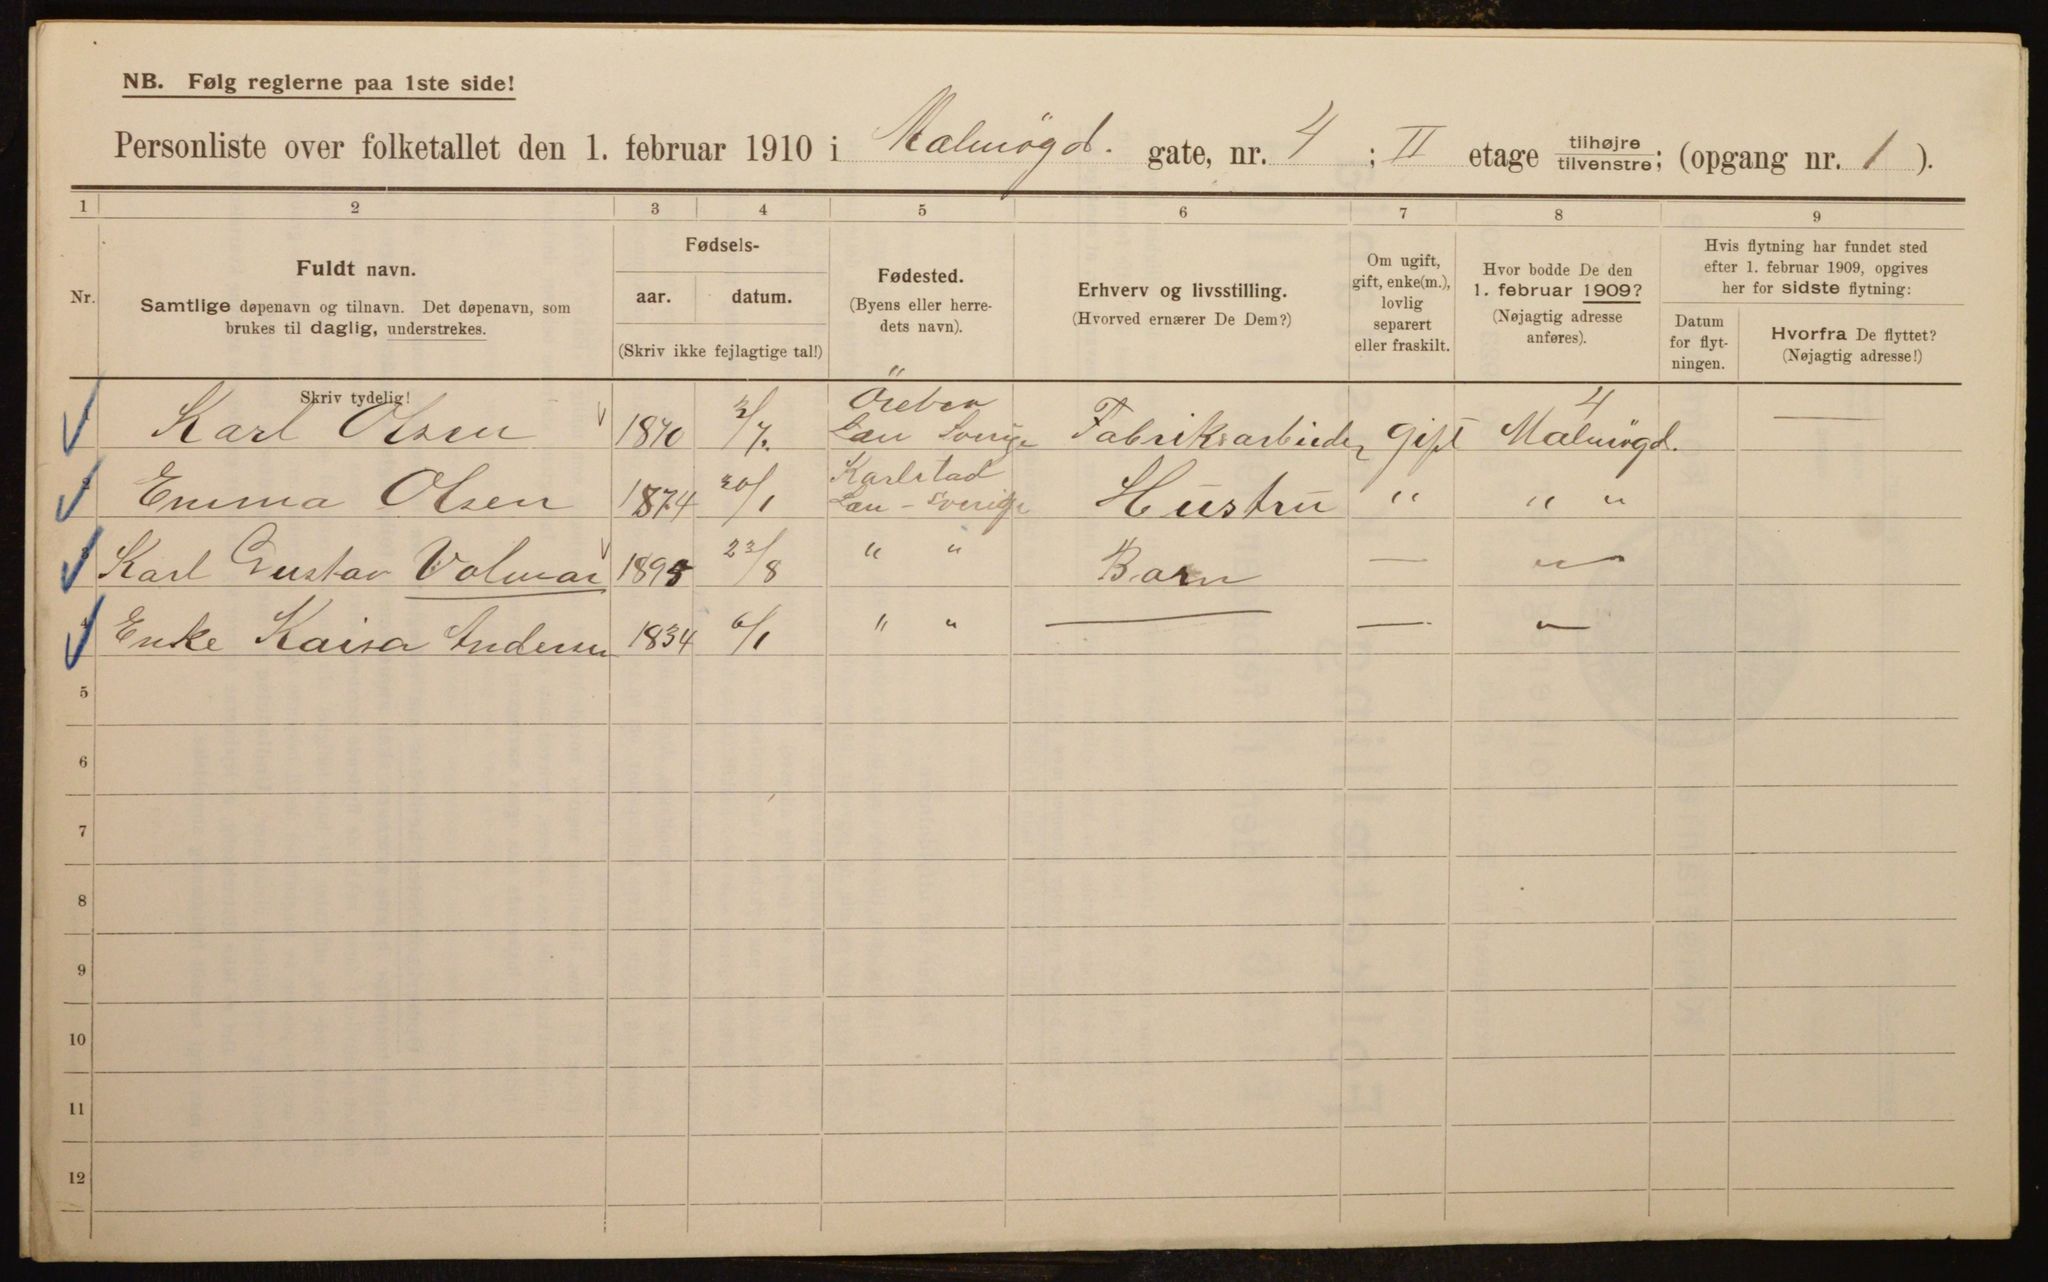 NB. Følg reglerne paa 1ste side!
Personliste over folketallet den 1. februar 1910 i Malmögd. gate, nr. 4 ; II etage tilhøjre/tilvenstre; (opgang nr. 1 ).
1 2 3 4 5 6 7 8 9
Nr. Fuldt navn. Samtlige døpenavn og tilnavn. Det døpenavn, som brukes til daglig, understrekes.
Fødsels-
aar. datum.
(Skriv ikke fejlagtige tal!)
Fødested.
(Byens eller herredets navn).
Erhverv og livsstilling.
(Hvorved ernærer De Dem?)
Om ugift, gift, enke(m.), lovlig separert eller fraskilt.
Hvor bodde De den 1. februar 1909? (Nøjagtig adresse anføres).
Hvis flytning har fundet sted efter 1. februar 1909, opgives her for sidste flytning:
Datum for flytningen.
Hvorfra De flyttet? (Nøjagtig adresse!)
Skriv tydelig!
1 Karl Olsen 1870 /7. Örebro Län Sverige Fabriksarbeider gift 4 Malmögd. —
2 Emma Olsen 1874 20/1 Karlstad Län - Sverige Hustru " " "
3 Karl Gustav Volmar 1895 23/8 " " Barn — "
4 Enke Kaisa Andersen 1834 6/1 " " — — "
5
6
7
8
9
10
11
12